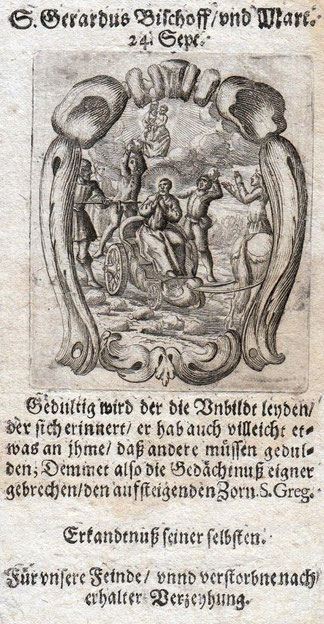 S. Gerardus Bischoff/ vnd Mart.
24. Sept.
Gedultig wird der die Vnbildt leyden/
der sich erinnert/ er hab auch villeicht et-
was an jhme/ daß andere müssen gedul-
den; Demmet also die Gedächtnuß eigner
gebrechen/ den aufsteigenden Zorn. S. Greg.
Erkandtnuß seiner selbsten.
Für vnsere Feinde/ vnnd verstorbne nach
erhalter Verzeyhung.